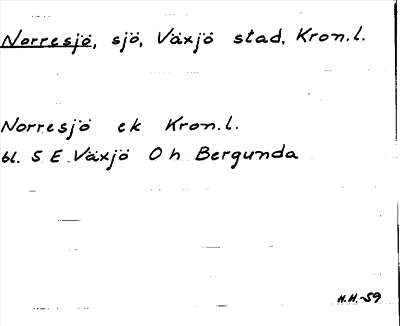 Norresjö, sjö, Växjö stad, Kron.l.
Norresjö ek Kron.l.
bl. 5 E Växjö O h Bergunda
H.H.-59